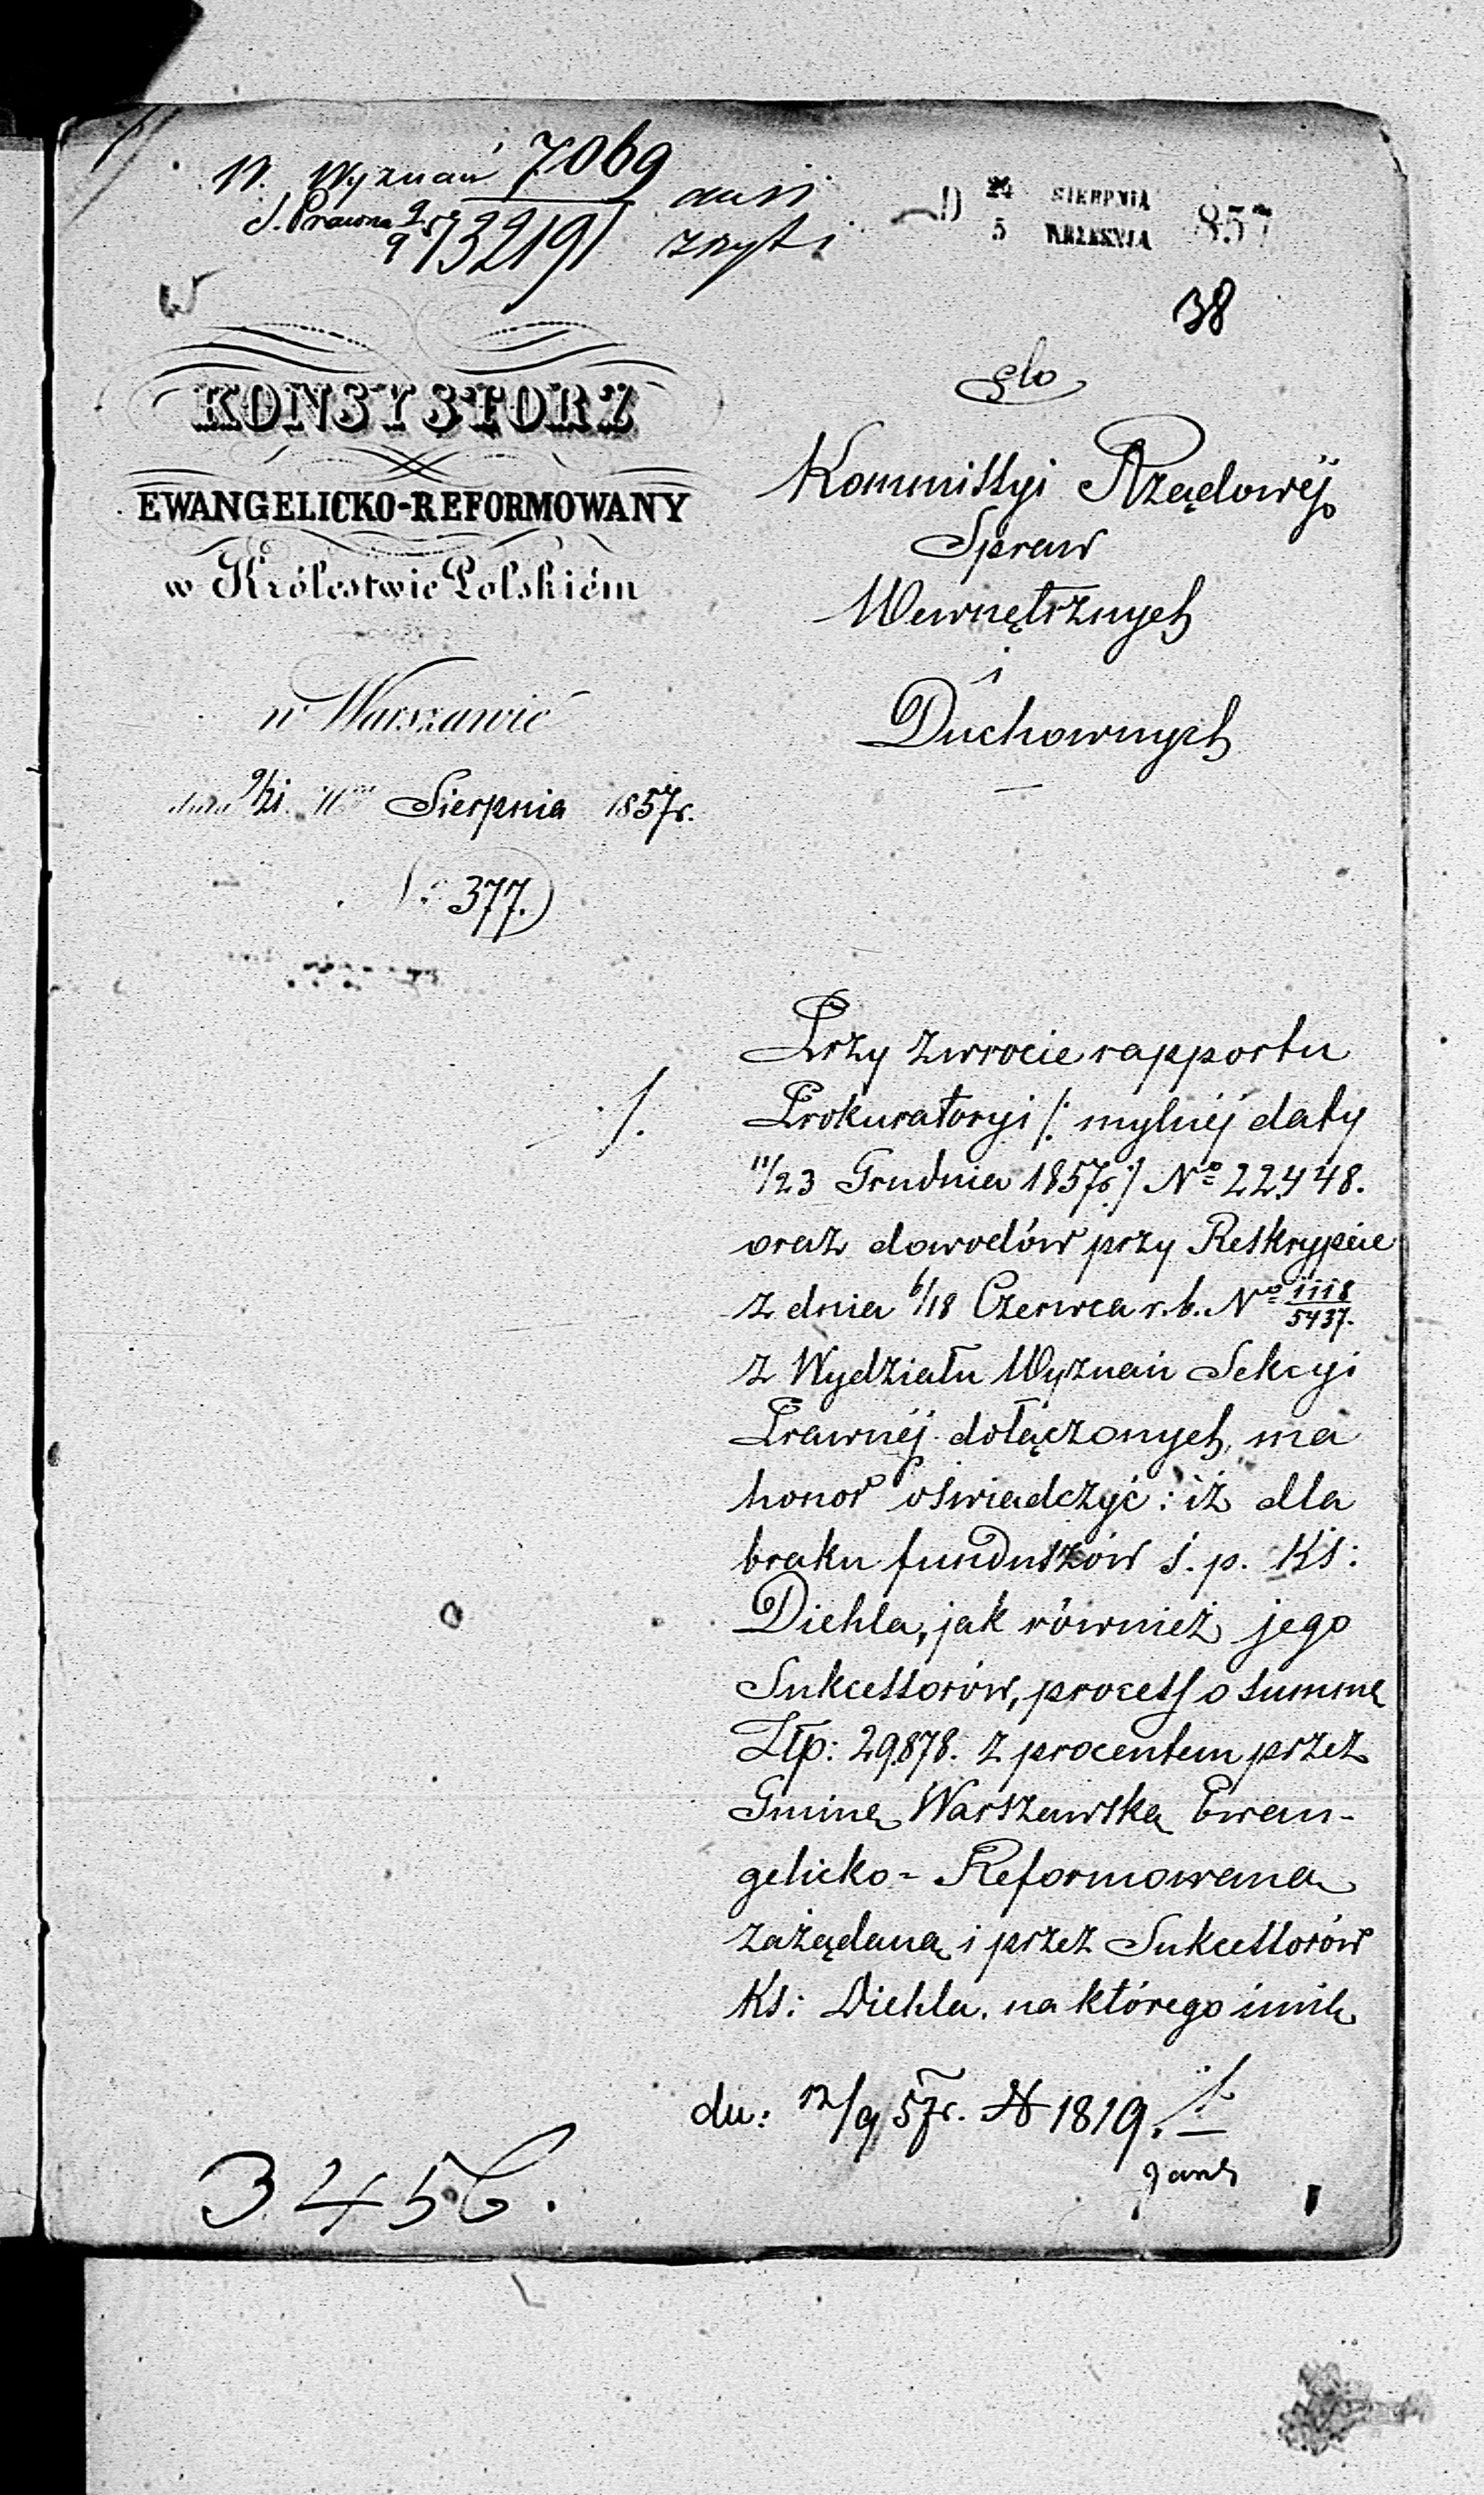 W. Wyznań 7069
S. Prawna 13219
24 SIERPNIA
5 WRZEŚNIA 857
38
KONSYSTORZ
EWANGELICKO-REFORMOWANY
w Królestwie Polskiém
w Warszawie
dnia 9/21 Sierpnia 1857r.
377.
Do
Kommissyi Rządowéj
Spraw
Wewnętrznych
i
Duchownych
Przy zwrocie rapportu
Prokuratoryi /: mylnéj daty
11/23 Grudnia 1857r :/ No 22,448.
oraz dowodów przy Reskrypcie
z dnia 6/18 Czerwca r. b. No 1118/5437.
z Wydziału Wyznań Sekcyi
Prawnéj dołączonych, ma
honor oświadczyć: iż dla
braku funduszów ś. p. Ks:
Diehla, jak również jego
Sukcessorów, process o summę
Złp: 29,878. z procentem przez
Gminę Warszawską Ewan-
gelicko-Reformowaną
zażądaną i przez Sukcessorów
Ks: Diehla, na którego imię
du: 12/9 57r. N 1819.
3456.